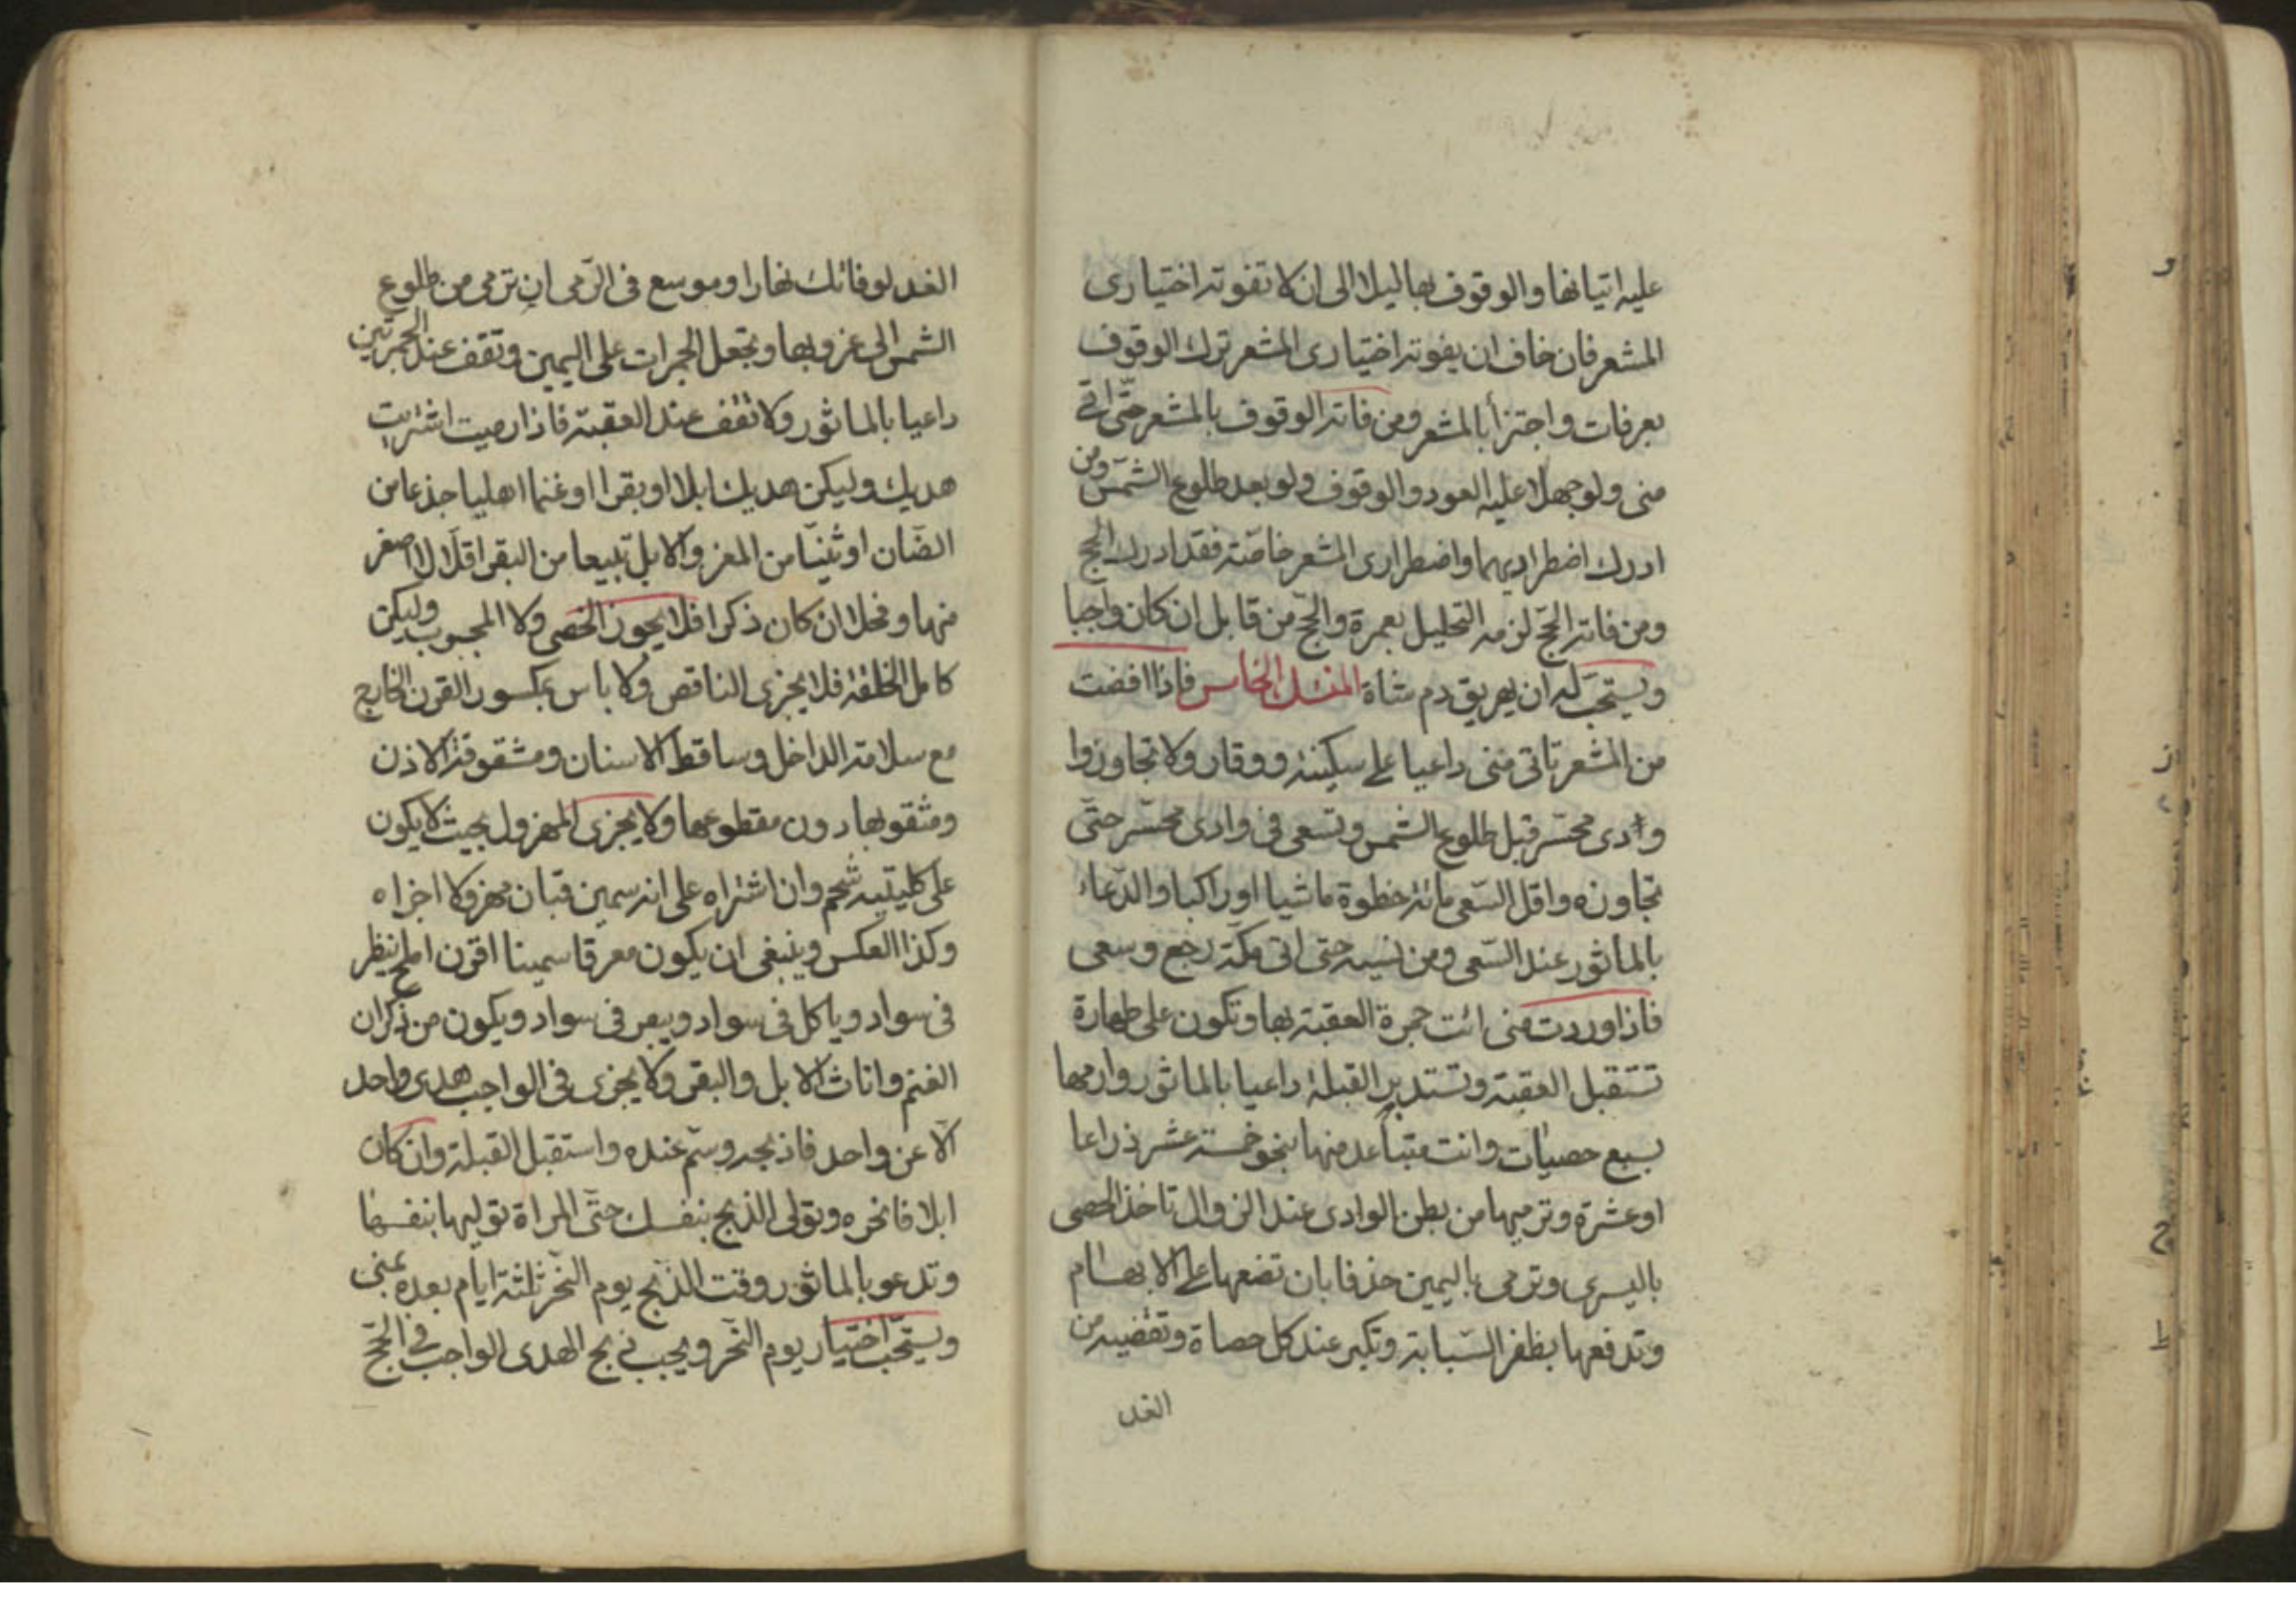 عليه اتيانها والوقوف بها ليلا الى ان لا تفوته اختيارى
المشعر فان خاف ان يفوته اختيارى المشعر ترك الوقوف
بعرفات واجتزأ بالمشعر ومن فاته الوقوف بالمشعر حتى اتى
منى ولو جهلا عليه العود والوقوف ولو بعد طلوع الشمس ومن
ادرك اضطراريهما واضطرارى المشعر خاصة فقد ادرك الحج
ومن فاته الحج لزمه التحليل بعمرة والحج من قابل ان كان واجبا
ويستحب له ان يهريق دم شاة المنسك الخامس فاذا افضت
من المشعر تاتى منى داعيا على سكينة ووقار ولا تجاوزوا
وادى محسر قبل طلوع الشمس وتسعى فى وادى محسر حتى
تجاوزه واقل السعى مائة خطوة ماشيا او راكبا والدعاء
بالماثور عند السعى ومن نسيه حتى اتى مكة رجع وسعى
فاذا وردت منى ائت جمرة العقبة بها وتكون على طهارة
تستقبل العقبة وتستدبر القبلة داعيا بالماثور وارمها
بسبع حصيات وانت متباعد منها بنحو خمسة عشر ذراعا
او عشرة وترميها من بطن الوادى عند الزوال تاخذ الحصى
باليسرى وترمى باليمين خذفا بان تضعها على الابهام
وتدفعها بظفر السبابة وتكبر عند كل حصاة وتقضيه من
الغد
الغد لو فاتك نهارا وموسع فى الرمى ان ترمى من طلوع
الشمس الى غروبها وتجعل الجمرات على اليمين وتقف عند الجمرتين
داعيا بالماثور ولا تقف عند العقبة فاذا رميت اشتريت
هديك وليكن هديك ابلا او بقرا او غنما اهليا جذعا من
الضان او ثنيا من المعز والابل تبيعا من البقر اقلا لا اصغر
منها وفحلا ان كان ذكرا فلا يجوز الخصى ولا المجبوب وليكن
كامل الخلقة فلا يجزى الناقص ولا باس بمكسور القرن الخارج
مع سلامة الداخل وساقط الاسنان ومشقوقة الاذن
ومثقوبها دون مقطوعها ولا يجزى المهزول بحيث لا يكون
على كليتيه شحم وان اشتراه على انه سمين فبان مهزولا اجزاه
وكذا العكس وينبغى ان يكون معرفا سمينا اقرن املح ينظر
فى سواد وياكل فى سواد ويبعر فى سواد ويكون من ذكران
الغنم واناث الابل والبقر ولا يجزى فى الواجب هدى واحد
الا عن واحد فاذبحه وسم عنده واستقبل القبلة وان كان
ابلا فانحره وتولى الذبح بنفسك حتى المراة توليها بنفسها
وتدعو بالماثور وقت الذبح يوم النحر ثلثة ايام بعده بمنى
ويستحب اختيار يوم النحر ويجب ذبح الهدى الواجب فى الحج